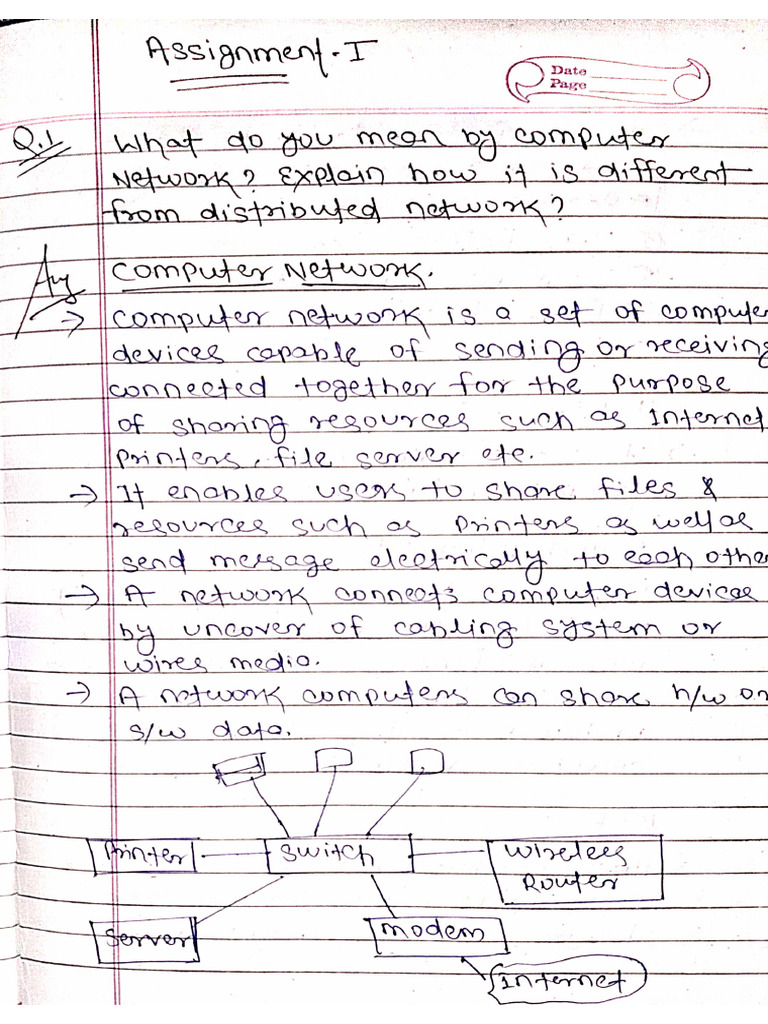 Assignment-I
Date
Page
Q.1 What do you mean by computer
Network? Explain how it is different
from distributed network?
Ans Computer Network.
→ Computer network is a set of compute
devices capable of sending or receiving
connected together for the purpose
of sharing resources such as Internet,
Printers, file server etc.
→ It enables users to share files &
resources such as Printers as well as
send message electrically to each other
→ A network connects computer devices
by uncover of cabling system or
wires media.
→ A network computers can share h/w or
s/w data.
Printer Switch Wireless
Router
Server Modem
Internet